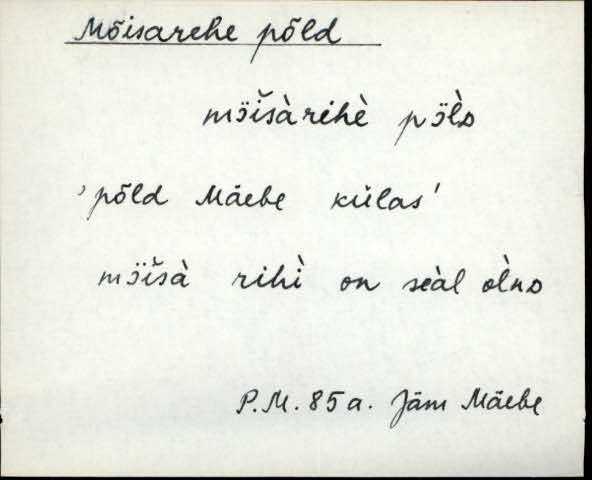 Mõisarehe põld
mȫi̮š̀àrihè pȫl̀ᴅ
'põld Mäebe külas'
mȫi̮šà rihì on seàl òlnᴅ
P.M. 85 a. Jäm Mäebe